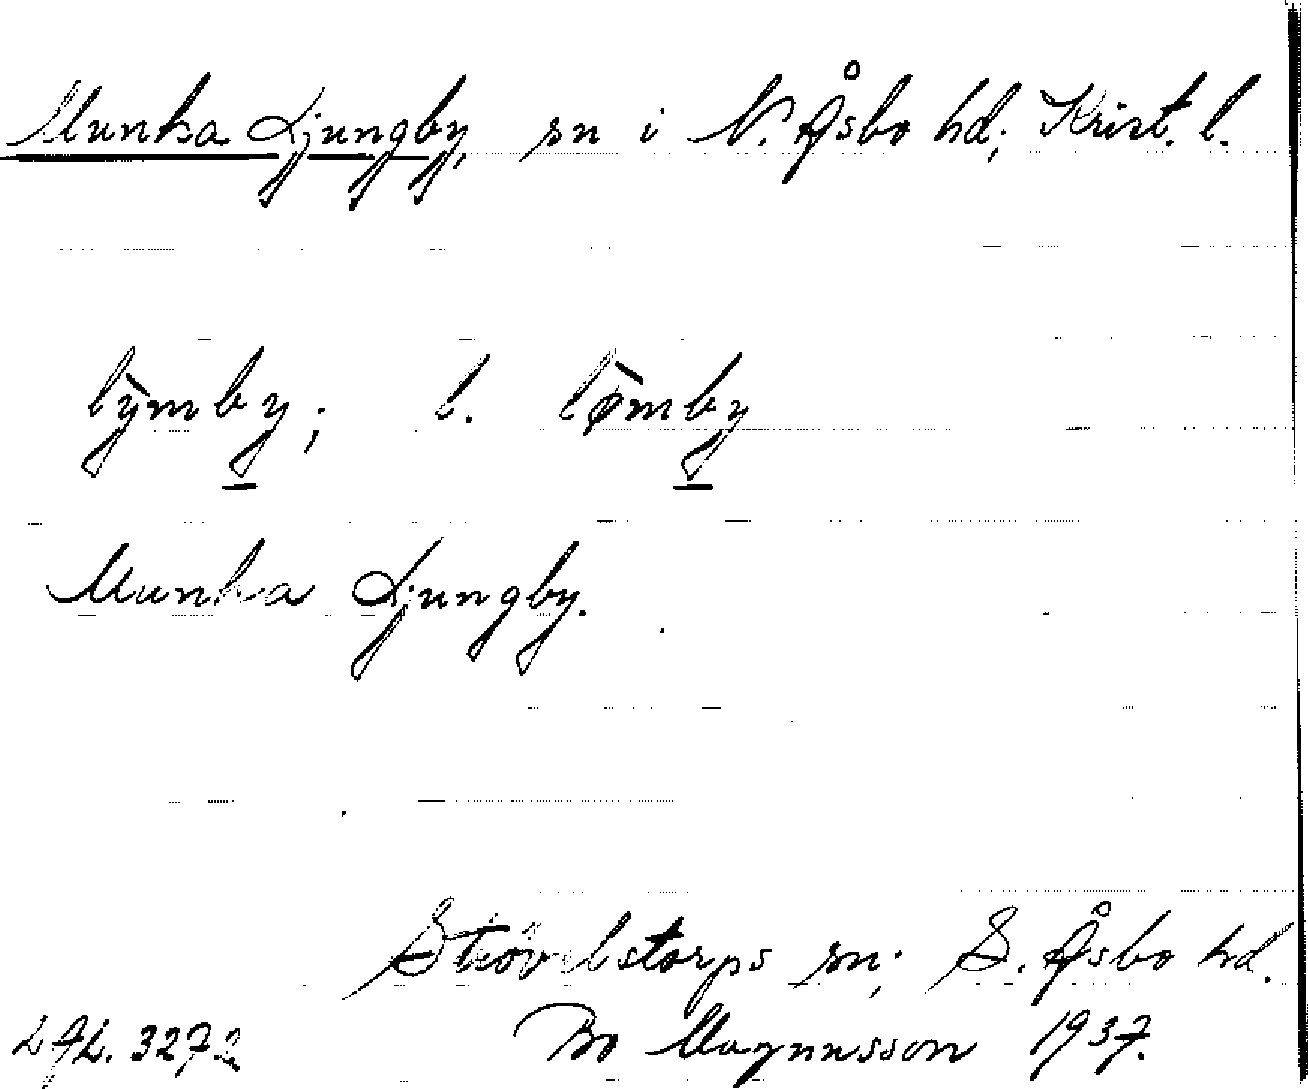 Munka Ljungby, sn i N. Åsbo hd; Krist. l.
lỳmby; l. lø̀mby
Munka Ljungby.
Strövelstorps sn; S. Åsbo hd.
LAL. 3272 Bo Magnusson 1937.